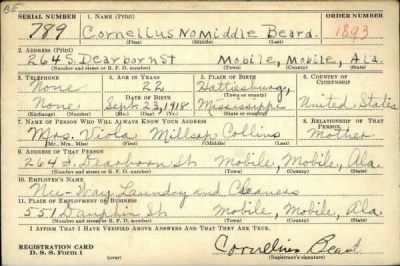 BE
SERIAL NUMBER 1. NAME (Print) ORDER NUMBER
789 Cornelius No Middle Beard. 1893
(First) (Middle) (Last)
2. ADDRESS (Print)
264 S. Dearborn St Mobile, Mobile, Ala.
(Number and street or R. F. D. number) (Town) (County) (State)
3. TELEPHONE 4. AGE IN YEARS 5. PLACE OF BIRTH 6. COUNTRY OF CITIZENSHIP
None 22 Hattisburg,
DATE OF BIRTH (Town or county)
None Sept. 23, 1918 Mississippi United States
(Exchange) (Number) (Mo.) (Day) (Yr.) (State or country)
7. NAME OF PERSON WHO WILL ALWAYS KNOW YOUR ADDRESS 8. RELATIONSHIP OF THAT PERSON
Mrs. Viola Millsap Collins Mother
(Mr., Mrs., Miss) (First) (Middle) (Last)
9. ADDRESS OF THAT PERSON
264 S. Dearborn St. Mobile, Mobile, Ala.
(Number and street or R. F. D. number) (Town) (County) (State)
10. EMPLOYER'S NAME
Nu-Way Laundry and Cleaners
11. PLACE OF EMPLOYMENT OR BUSINESS
551 Dauphin St. Mobile, Mobile, Ala.
(Number and street or R. F. D. number) (Town) (County) (State)
I AFFIRM THAT I HAVE VERIFIED ABOVE ANSWERS AND THAT THEY ARE TRUE.
REGISTRATION CARD
D. S. S. Form 1 Cornelius Beard
(Registrant's signature)